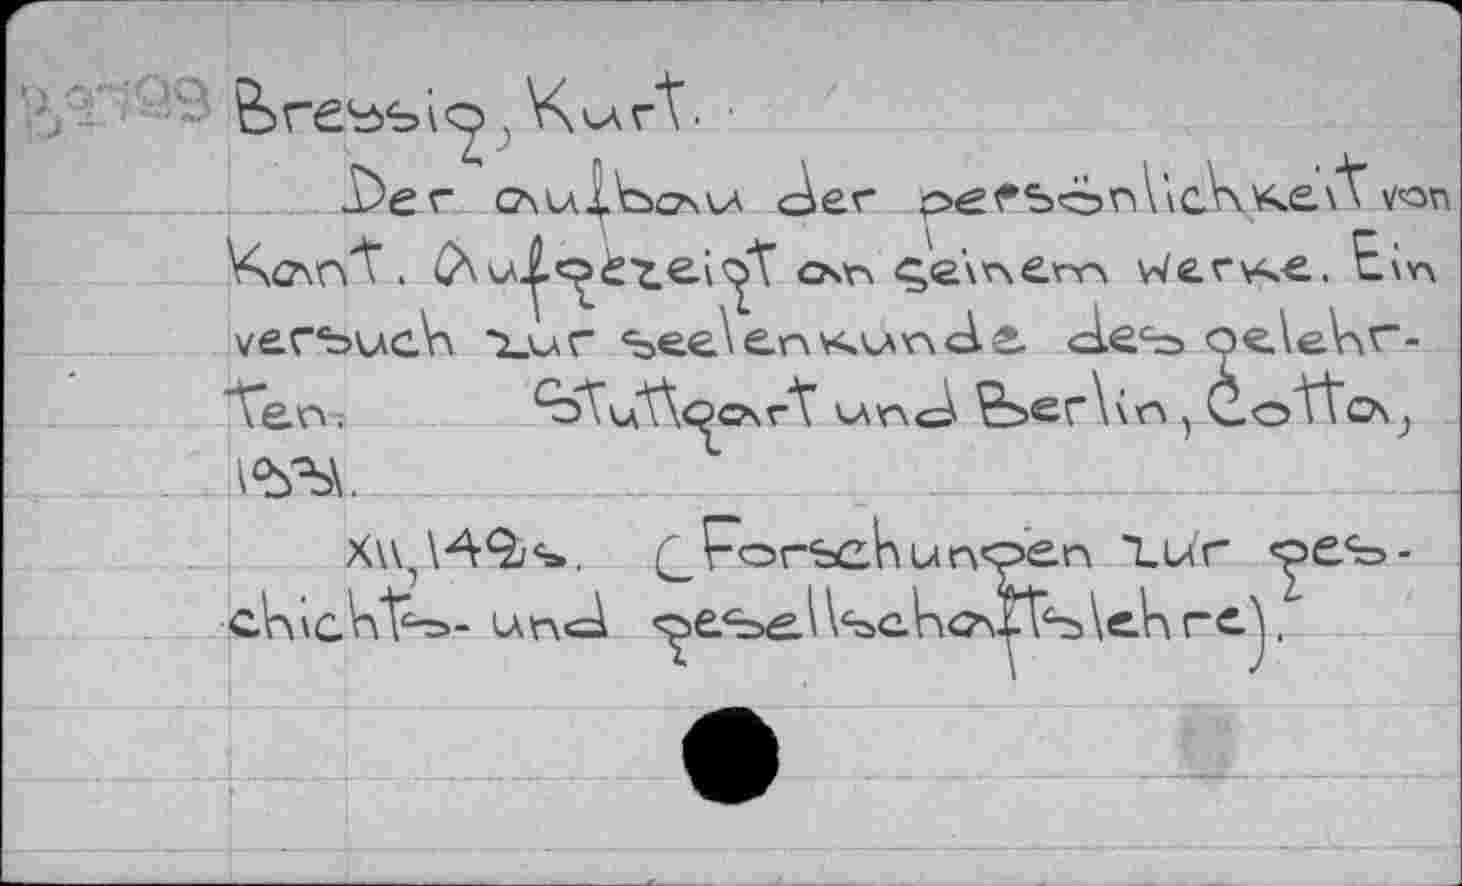 Breysig, Kurt.
Der aufbau der persönlichkeit von
Kant. Aufgezeigt an seinem werke. Ein
versuch zur seelenkunde des gelehr-
ten. Stuttgart und Berlin, Cotta,
1931.
xii, 148 s. (Forschungen zur ges-
chichts- und gesellschaftslehre).